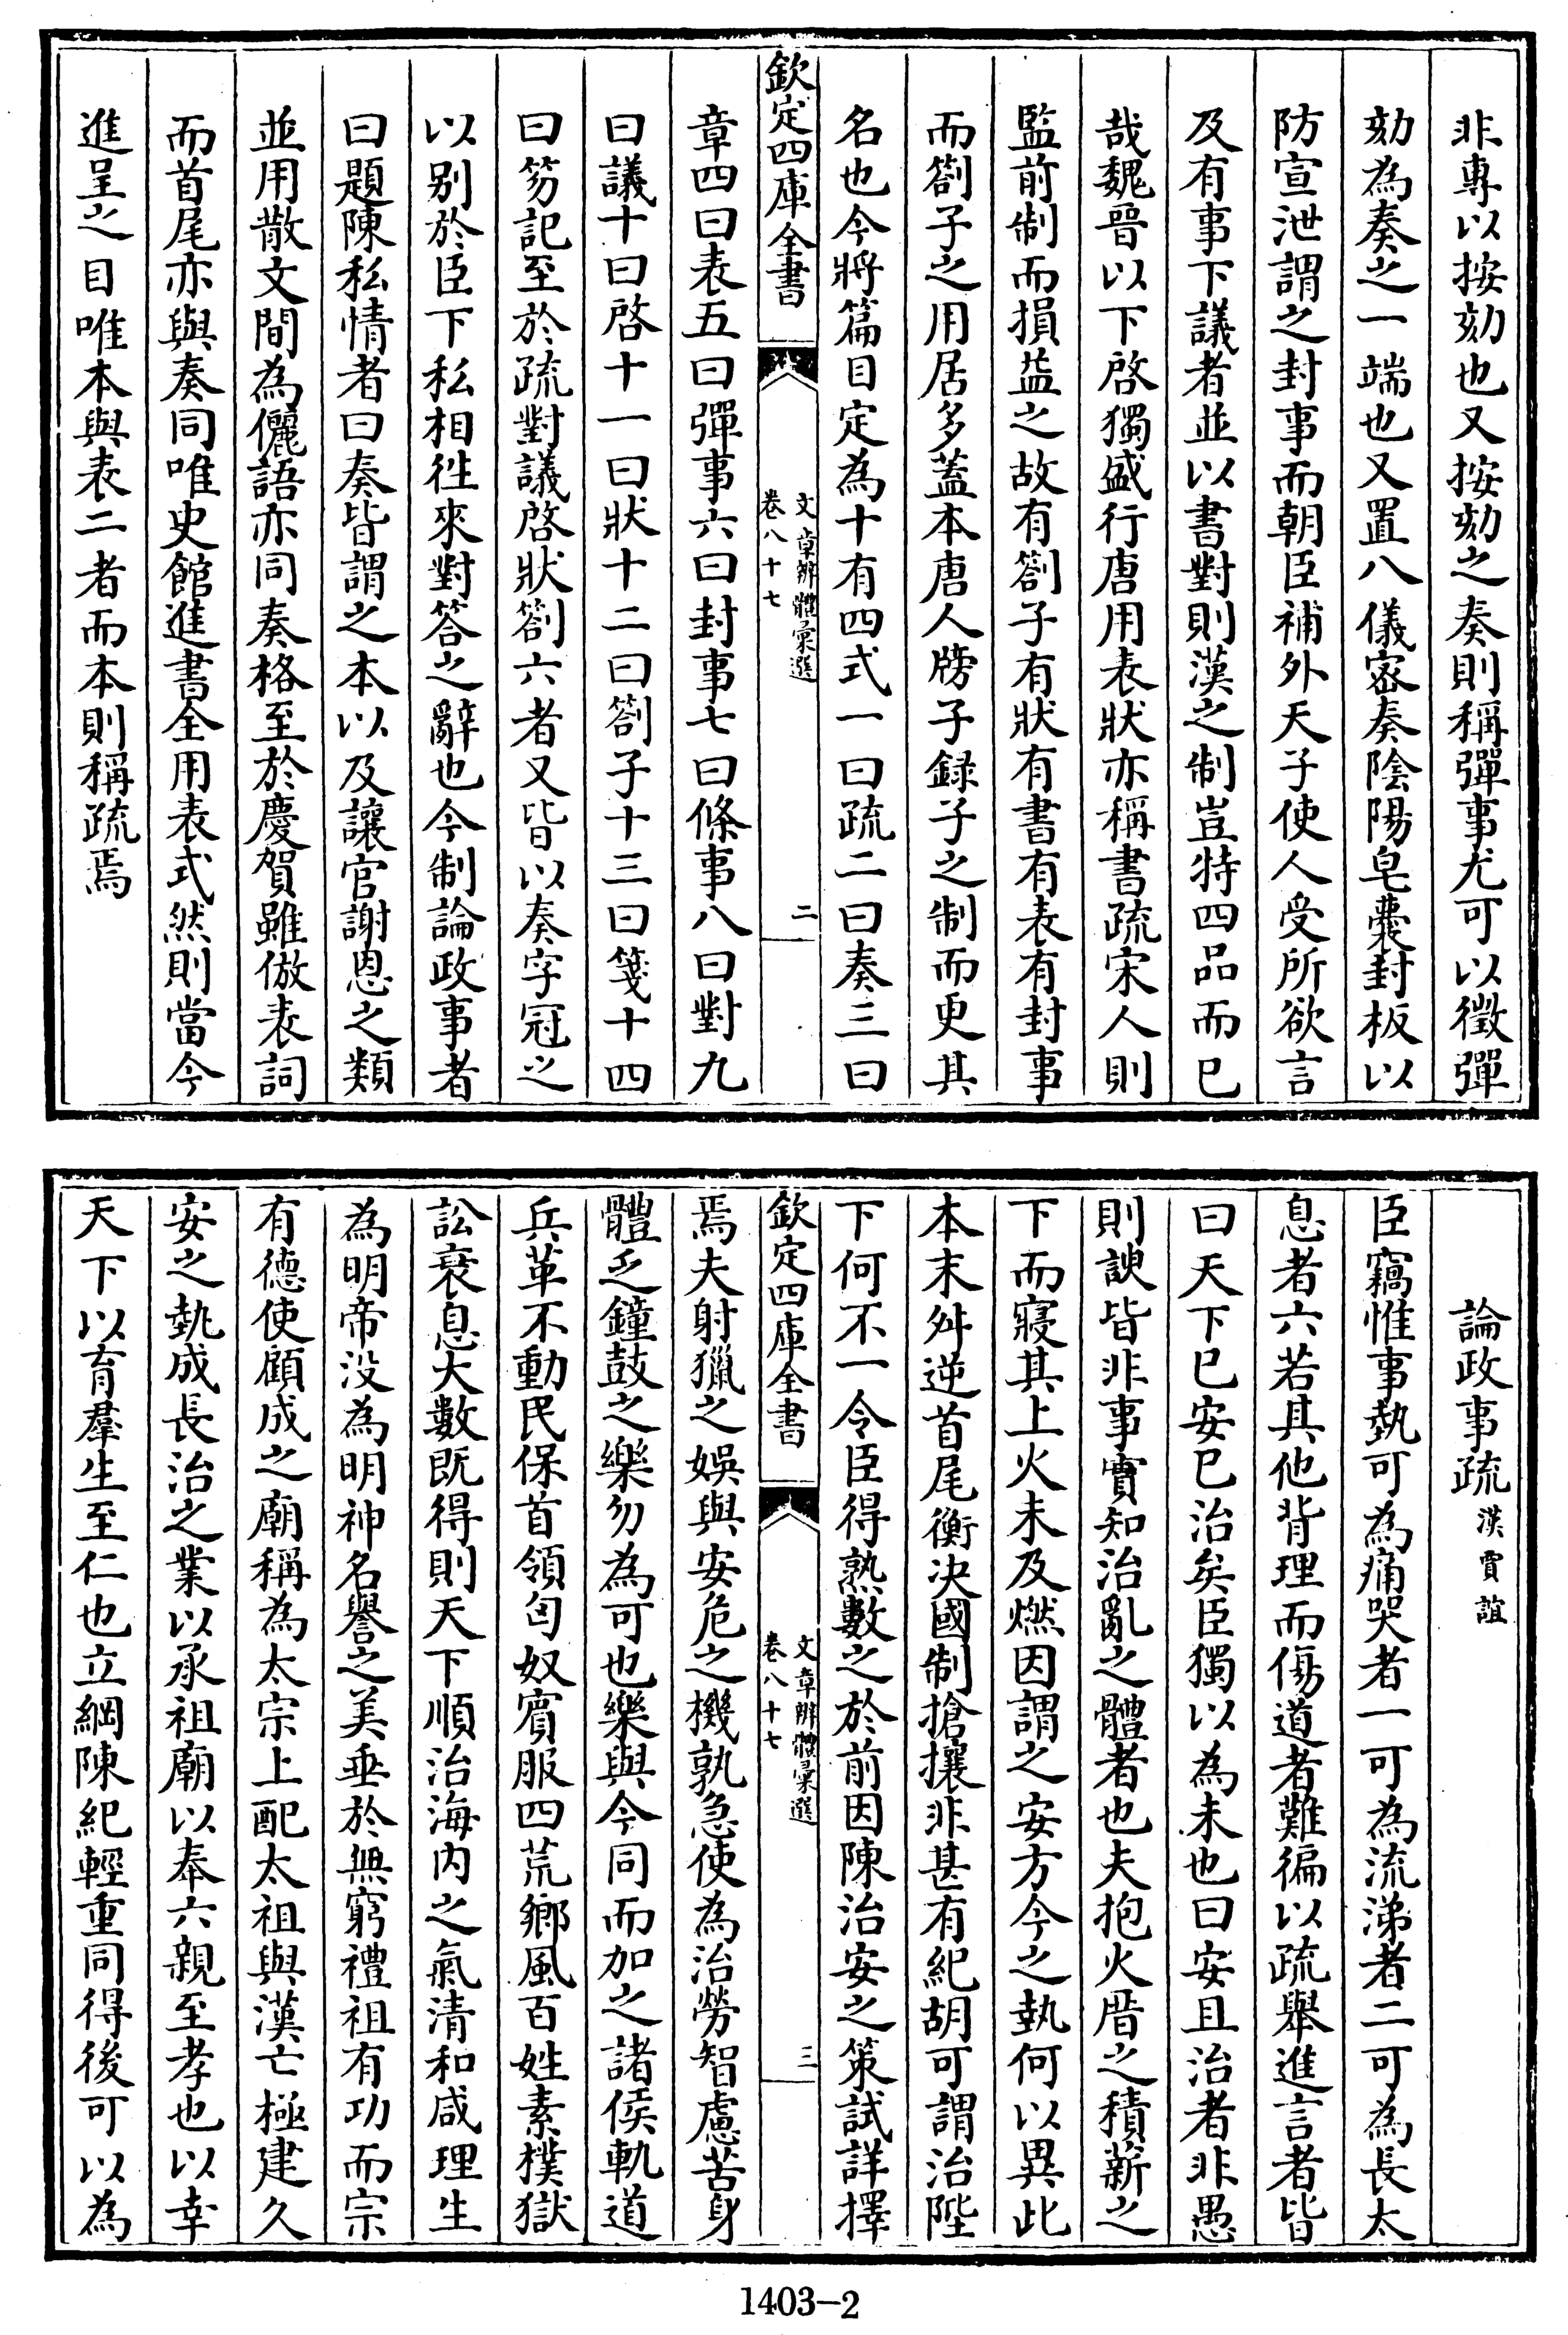 非專以按劾也又按劾之奏則稱彈事尤可以徵彈
劾為奏之一端也又置八儀密奏陰陽皂囊封板以
防宣泄謂之封事而朝臣補外天子使人受所欲言
及有事下議者並以書對則漢之制豈特四品而已
哉魏晉以下啓獨盛行唐用表狀亦稱書疏宋人則
監前制而損益之故有劄子有狀有書有表有封事
而劄子之用居多蓋本唐人牓子録子之制而更其
名也今將篇目定為十有四式一曰疏二曰奏三曰
欽定四庫全書
文章辨體彙選
卷八十七
二
章四曰表五曰彈事六曰封事七曰條事八曰對九
曰議十曰啓十一曰狀十二曰劄子十三曰箋十四
曰笏記至於疏對議啓狀劄六者又皆以奏字冠之
以別於臣下私相徃來對答之辭也今制論政事者
曰題陳私情者曰奏皆謂之本以及讓官謝恩之類
並用散文間為儷語亦同奏格至於慶賀雖倣表詞
而首尾亦與奏同唯史館進書全用表式然則當今
進呈之目唯本與表二者而本則稱疏焉
論政事疏漢賈誼
臣竊惟事埶可為痛哭者一可為流涕者二可為長太
息者六若其他背理而傷道者難徧以疏舉進言者皆
曰天下已安已治矣臣獨以為未也曰安且治者非愚
則諛皆非事實知治亂之體者也夫抱火厝之積薪之
下而寢其上火未及燃因謂之安方今之埶何以異此
本末舛逆首尾衡决國制搶攘非甚有紀胡可謂治陛
下何不一令臣得熟數之於前因陳治安之策試詳擇
欽定四庫全書
文章辨體彙選
卷八十七
三
焉夫射獵之娛與安危之機孰急使為治勞智慮苦身
體乏鐘鼓之樂勿為可也樂與今同而加之諸侯軌道
兵革不動民保首領匈奴賓服四荒鄉風百姓素樸獄
訟衰息大數既得則天下順治海内之氣清和咸理生
為明帝没為明神名譽之美垂於無窮禮祖有功而宗
有德使顧成之廟稱為太宗上配太祖與漢亡極建久
安之埶成長治之業以承祖廟以奉六親至孝也以幸
天下以育羣生至仁也立綱陳紀輕重同得後可以為
1403-2